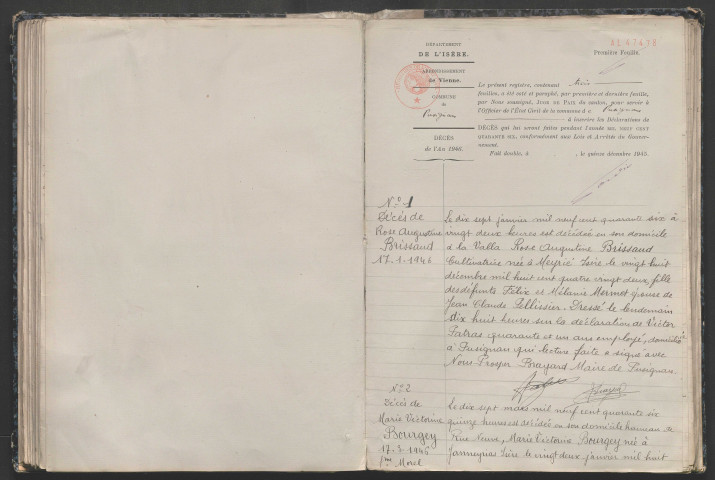 DÉPARTEMENT
DE L'ISÈRE.
ARRONDISSEMENT
de Vienne.
COMMUNE
de
Pusignan
DÉCÈS
de l'An 1946.
Première Feuille.
Le présent registre, contenant trois
feuilles, a été coté et paraphé, par première et dernière feuille,
par Nous soussigné, JUGE DE PAIX du canton, pour servir à
l'Officier de l'État Civil de la commune d e Pusignan
à inscrire les Déclarations de
DÉCÈS qui lui seront faites pendant l'année MIL NEUF CENT
QUARANTE SIX, conformément aux Lois et Arrêtés du Gouver-
nement.
Fait double, à , le quinze décembre 1945.
N° 1
Décès de
Rose Augustine
Brissaud
17-1-1946
Le dix sept janvier mil neuf cent quarante six à
vingt deux heures est décédée en son domicile
à la Valla Rose Augustine Brissaud
Cultivatrice née à Meyrié Isère le vingt huit
décembre mil huit cent quatre vingt deux, fille
des défunts Félix et Mélanie Mermet épouse de
Jean Claude Pellissier. Dressé le lendemain
dix huit heures sur la déclaration de Victor
Patras quarante et un ans employé, domicilié
à Pusignan qui lecture faite a signé avec
Nous Prosper Brayard Maire de Pusignan.
N° 2
Décès de
Marie Victorine
Bourgey
17-3-1946
Morel
Le dix sept mars mil neuf cent quarante six
quinze heures est décédée en son domicile hameau de
Rue Neuve, Marie Victorine Bourgey née à
Janneyrias Isère le vingt deux janvier mil huit